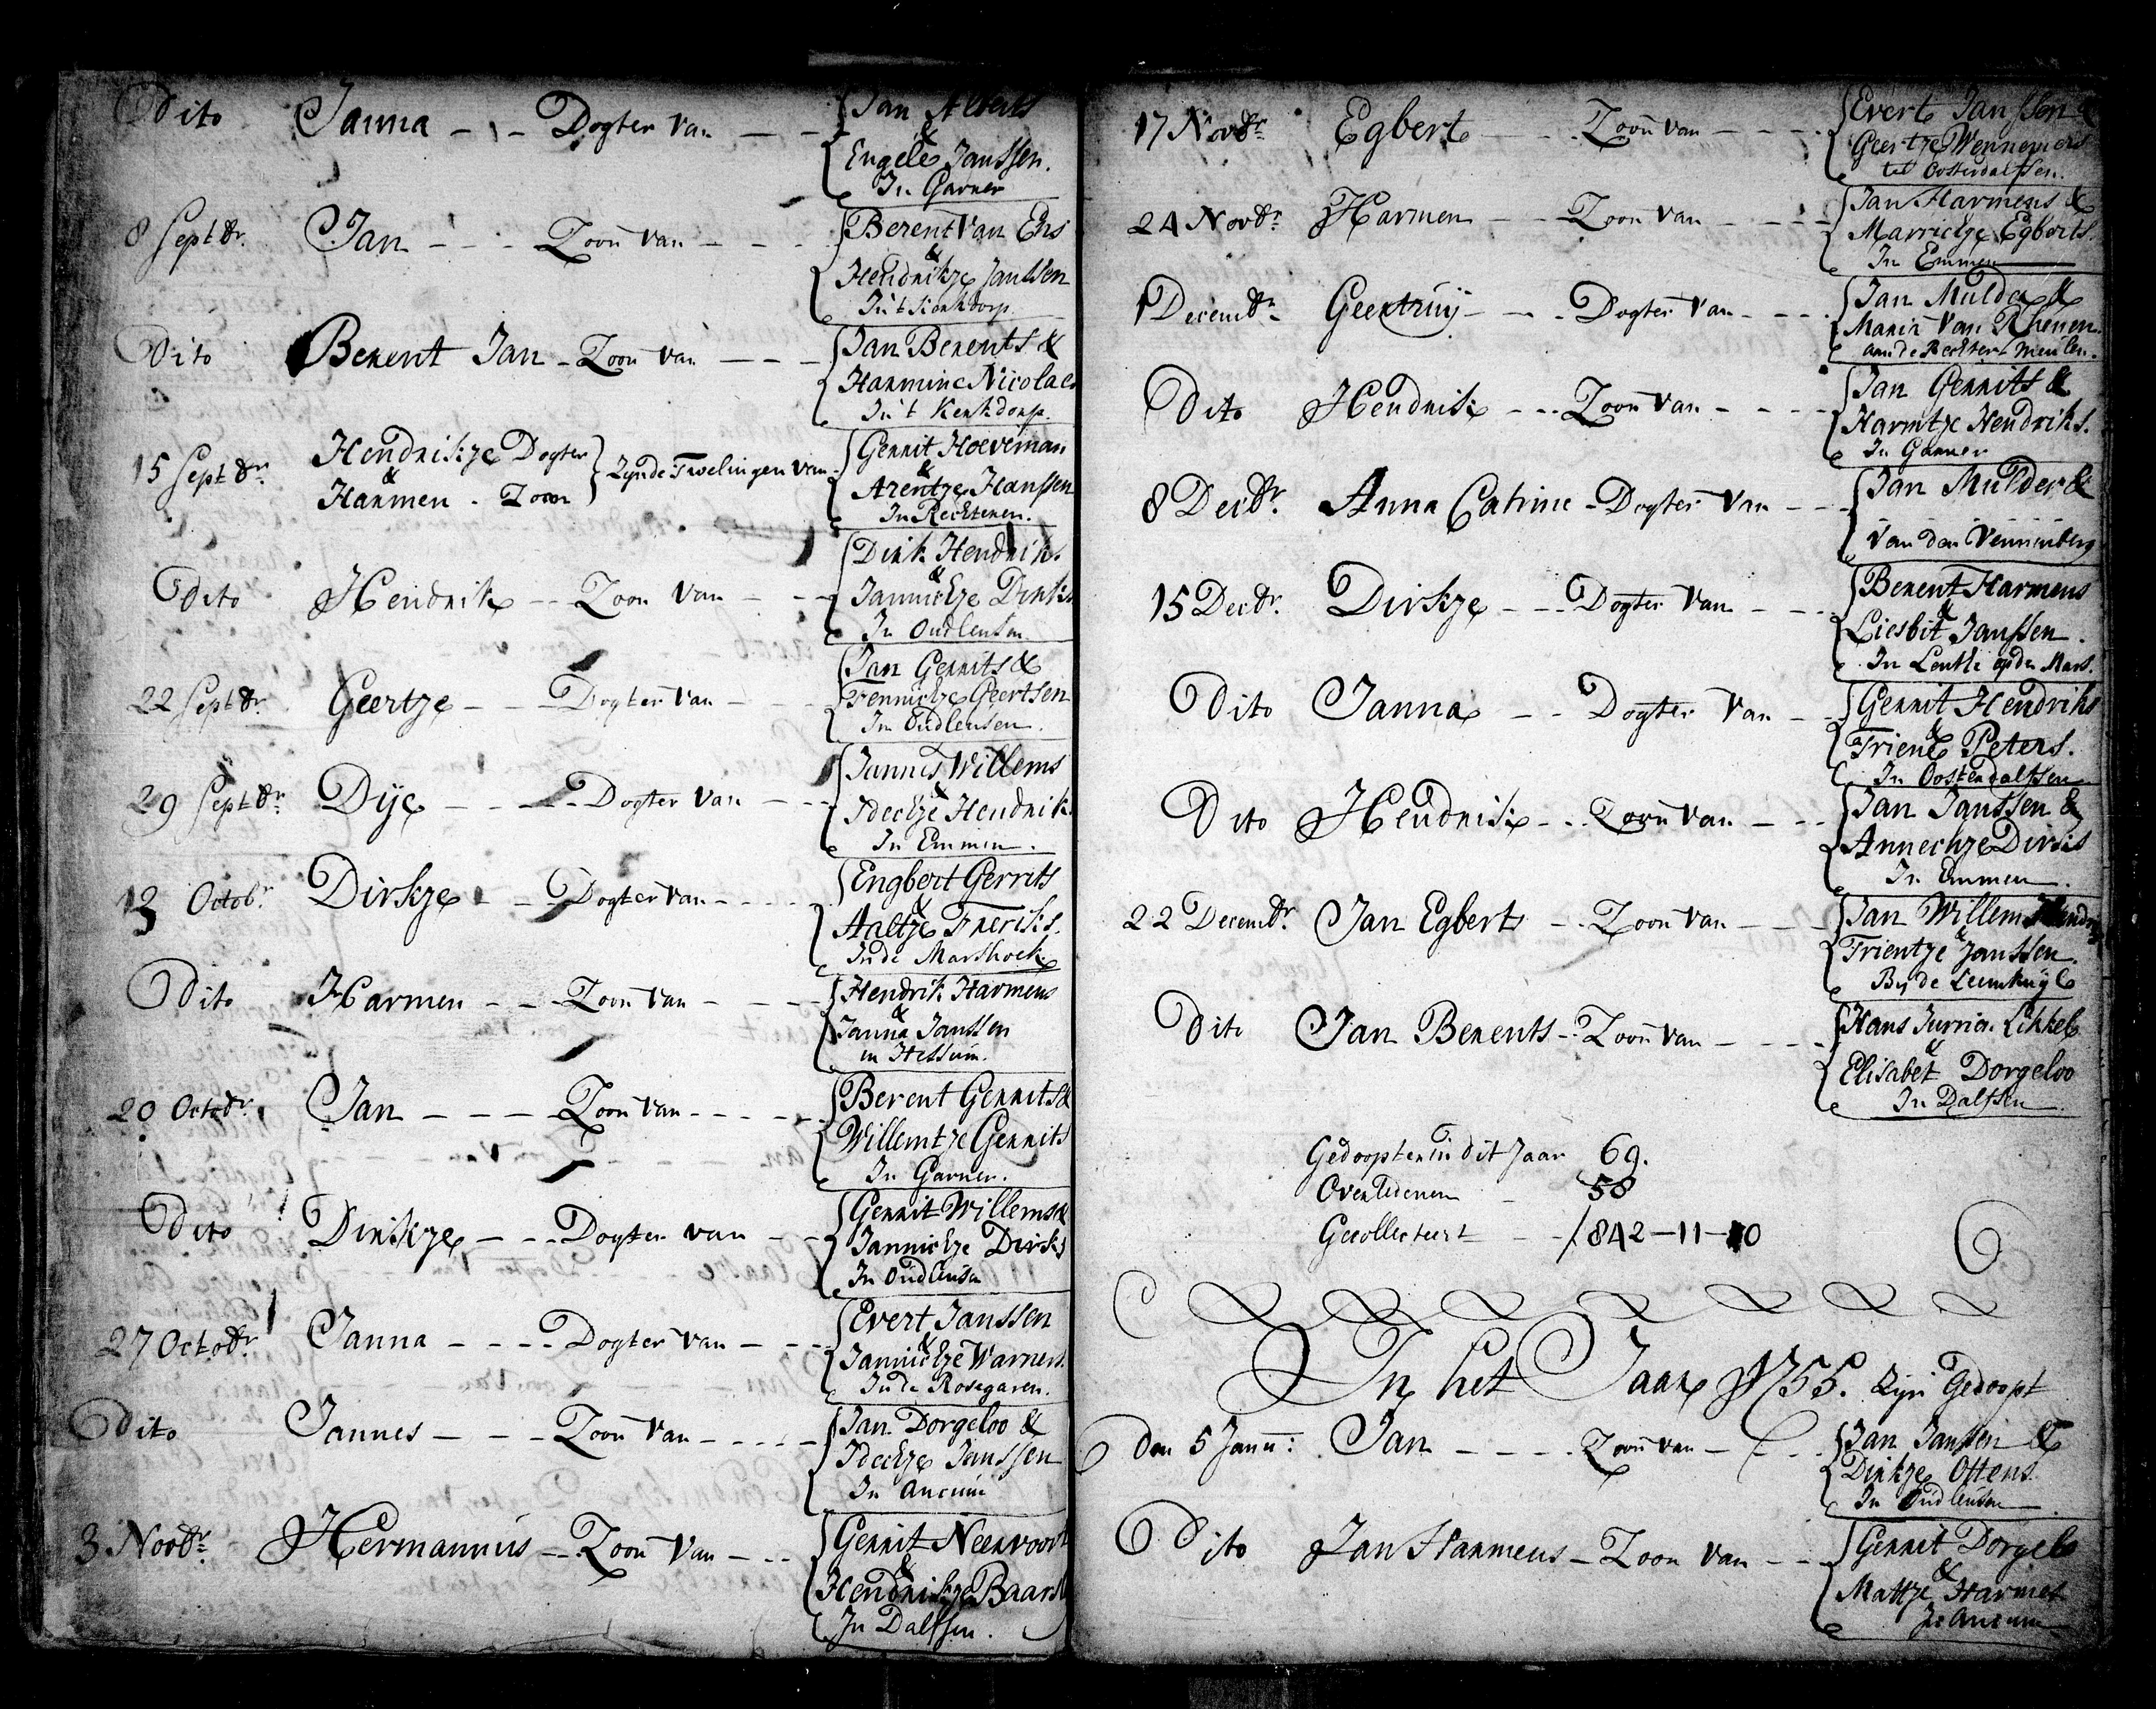 Dito Janna - - - Dogter van - - Jan Alberts
&
Engele Janssen.
In Garner
8 Septbr. Jan - - - Zoon van - - - Berent van Ens
&
Hendrikje Janssen
In 't Kerkdorp
Dito Berent Jan - Zoon van - - - Jan Berents &
Harmine Nicolaes
In 't Kerkdorp.
15 Septbr. Hendrikje Dogter
&
Harmen - Zoon
Zynde Twelingen van - Gerrit Hoeveman
&
Arentje Hanssen
In Rechteren.
Dito Hendrik - - Zoon van - - - Dirk Hendriks
&
Jannichje Dirks
In Oudleusen
22 Septbr. Geertje - - Dogter van - - - Jan Gerrits &
Fennichje Geertsen
In Oudleusen.
29 Septbr. Dije - - - - Dogter van - - - Jannes Willems
&
Idechje Hendrik.
In Emmen.
13 Octobr. Dirkje - - Dogter van - - - - Engbert Gerrits
&
Aaltje Frerikś.
In de Marshoek
Dito Harmen - - - Zoon van - - - - Hendrik Harmens
&
Janna Janssen
in Hessum.
20 Octobr. Jan - - - - Zoon van - - - - - Berent Gerrits &
Willemtje Gerrits
In Garner.
Dito Dirkje - - - Dogter van - - Gerrit Willems &
Jannichje Dirks
In Oudleusen
27 Octobr. Janna - - - - Dogter van - - - Evert Janssen
&
Jannichje Warners.
In de Rosegaren.
Dito Jannes - - - Zoon van - - - - Jan Dorgeloo &
Ideckje Janssen
In Ancum
3 Novbr. Hermannus - - Zoon van - - - Gerrit Neervoort
&
Hendrikje Baars
In Dalfsen.
17 Novbr. Egbert - - - Zoon van - - - - Evert Janssen &
Geertje Wennemers
tot Oosterdalfsen.
24 Novbr. Harmen - - - Zoon van - - - - Jan Harmens &
Marrichje Egberts.
In Emmen
1 Decembr. Geertruij - - - Dogter van - - - - Jan Mulder &
Maria van Rhenen.
aan de Rechter Meulen.
Dito Hendrik - - - Zoon van - - - - Jan Gerrits &
Harmtje Hendriks.
In Garner
8 Decbr. Anna Catrine - Dogter van - - - Jan Mulder &
van den Vennenberg
15 Decbr. Dirkje - - - Dogter van - - - - Berent Harmens
&
Liesbit Janssen.
In Lenthe op de Mars.
Dito Janna - - Dogter van - - Gerrit Hendriks
&
Triene Peters.
In Oosterdalfsen
Dito Hendrik - - - Zoon van - - - Jan Janssen &
Annechje Dirks
In Emmen.
22 Decembr. Jan Egberts - - Zoon van - - - Jan Willem
&
Trientje Janssen.
By de Leemkuyle
Dito Jan Berents - - Zoon van - - - - Hans Jurria.
&
Elisabet Dorgeloo
In Dalfsen.
Gedoopten in dit Jaar 69.
Overledenen - 58
Gecollecteert - - ƒ 842-11-10
In het Jaar 1755. Zijn Gedoopt
Den 5 Janu: Jan - - - - Zoon van - - - Jan Janssen &
Dirkje Ottens.
In Oudleusen
Dito Jan Harmens - Zoon van - - Gerrit Dorgelo
&
Mattje Harmes
In Ancum